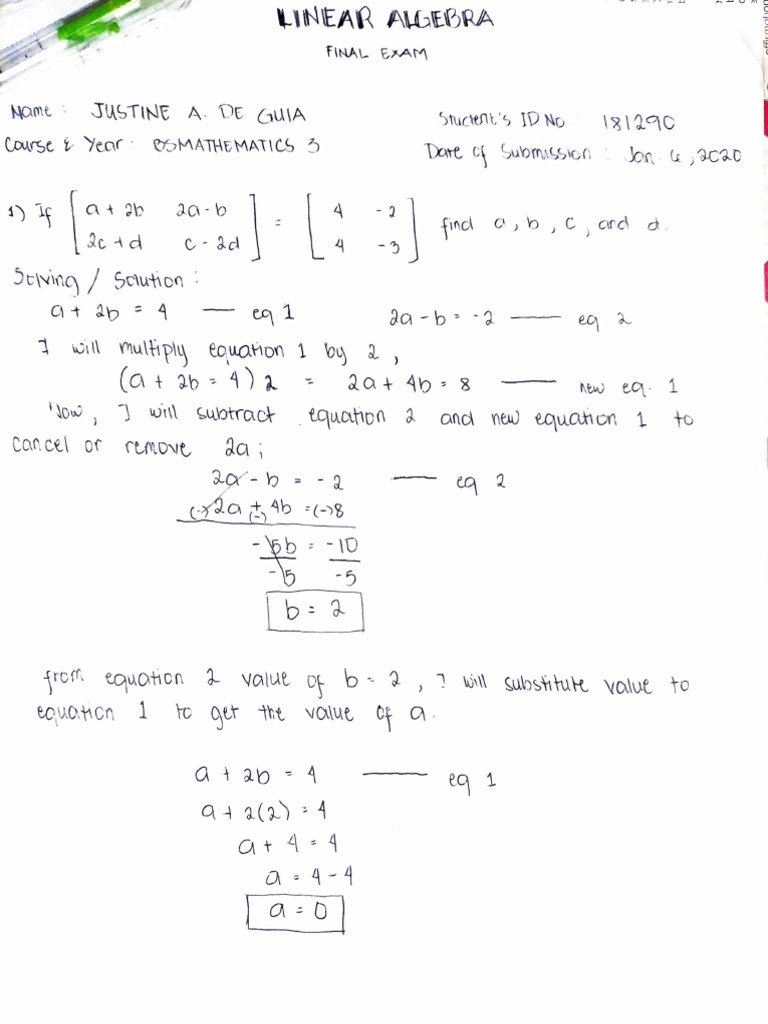 LINEAR ALGEBRA
FINAL EXAM
Name : JUSTINE A. DE GUIA
Student's ID No 181290
Course & Year : BSMATHEMATICS 3
Date of Submission : Jan. 6, 2020
1) If [ a + 2b 2a - b ] = [ 4 -2 ] find a, b, c, and d.
[ 2c + d c - 2d ] [ 4 -3 ]
Solving / Solution :
a + 2b = 4 — eq 1 2a - b = -2 — eq 2
I will multiply equation 1 by 2,
(a + 2b = 4) 2 = 2a + 4b = 8 — new eq. 1
Now, I will subtract equation 2 and new equation 1 to
cancel or remove 2a;
2a - b = - 2 — eq 2
(-) 2a + (-) 4b = (-) 8
-5b = -10
-5 -5
b = 2
from equation 2 value of b = 2, I will substitute value to
equation 1 to get the value of a.
a + 2b = 4 — eq 1
a + 2(2) = 4
a + 4 = 4
a = 4 - 4
a = 0